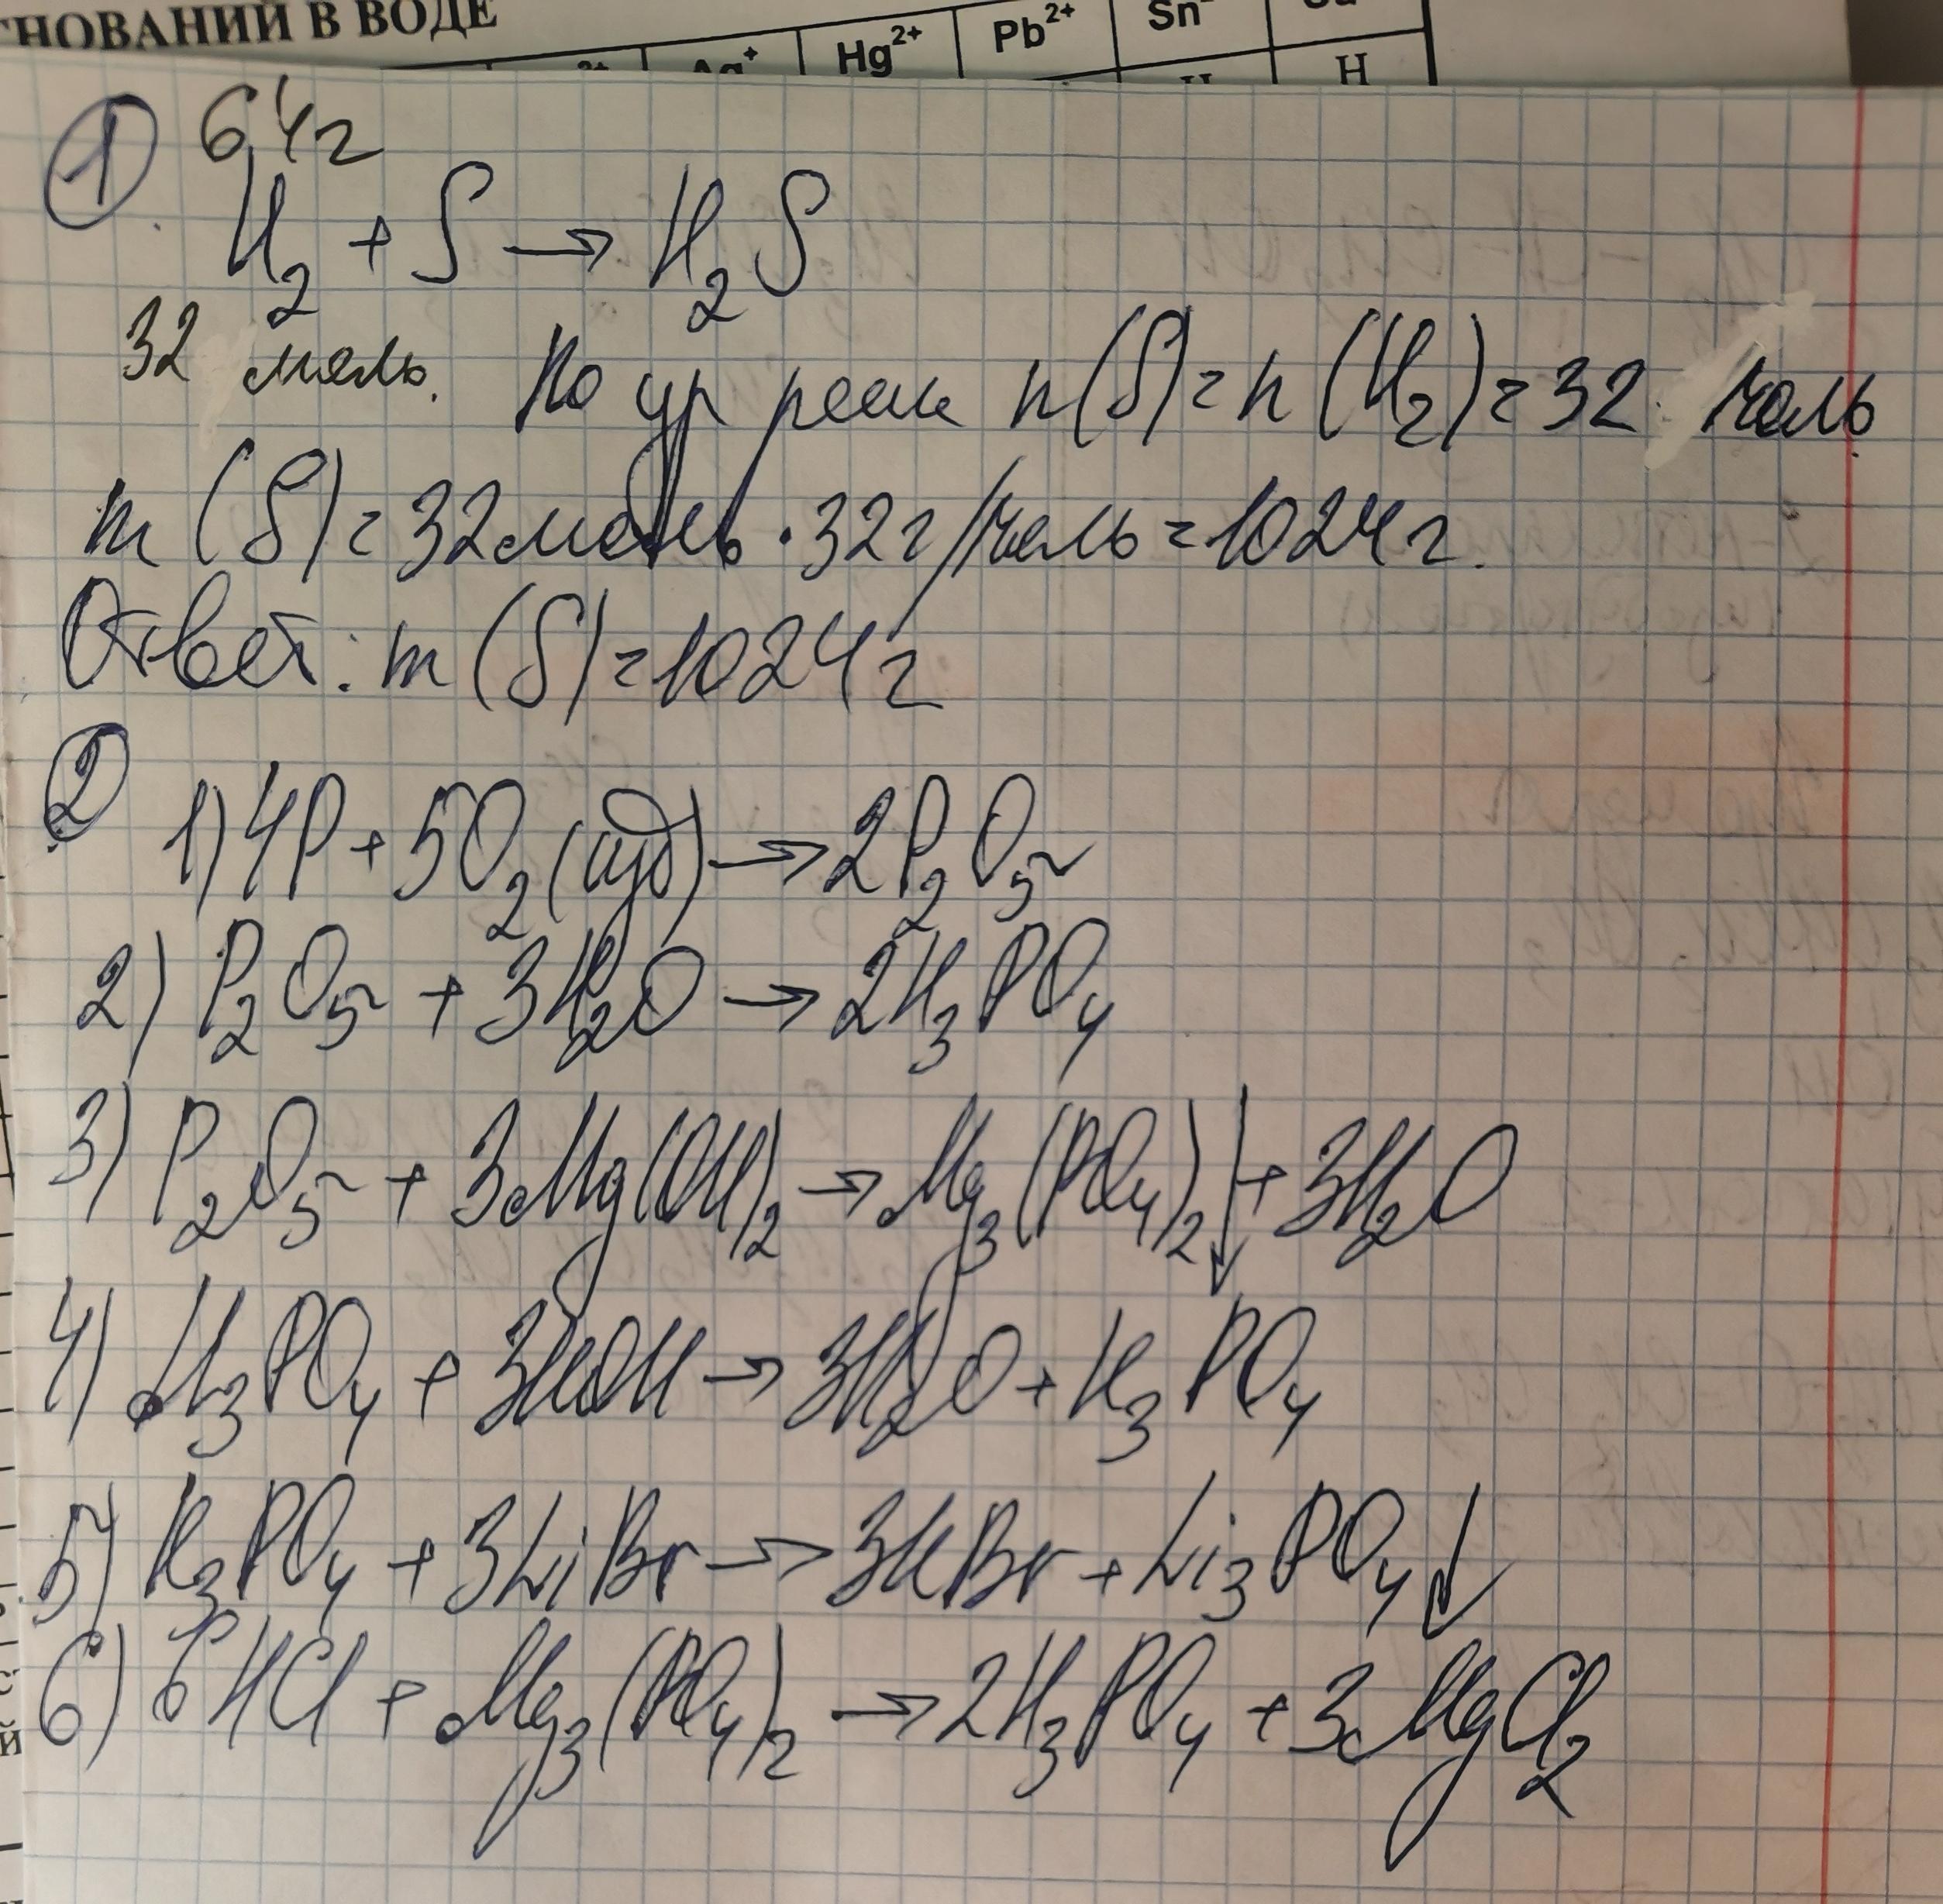 НОВАНИЙ В ВОДЕ
Ag⁺ Hg²⁺ Pb²⁺ Sn²⁺
Н
① 64г
H₂ + S → H₂S
32 моль. По ур реак n(S) = n(H₂) = 32 моль.
m(S) = 32 моль · 32 г/моль = 1024 г.
Ответ: m(S) = 1024 г
②
1) 4P + 5O₂ (изб) → 2P₂O₅
2) P₂O₅ + 3H₂O → 2H₃PO₄
3) P₂O₅ + 3Mg(OH)₂ → Mg₃(PO₄)₂↓ + 3H₂O
4) H₃PO₄ + 3KOH → 3H₂O + K₃PO₄
5) K₃PO₄ + 3LiBr → 3KBr + Li₃PO₄↓
6) 6HCl + Mg₃(PO₄)₂ → 2H₃PO₄ + 3MgCl₂